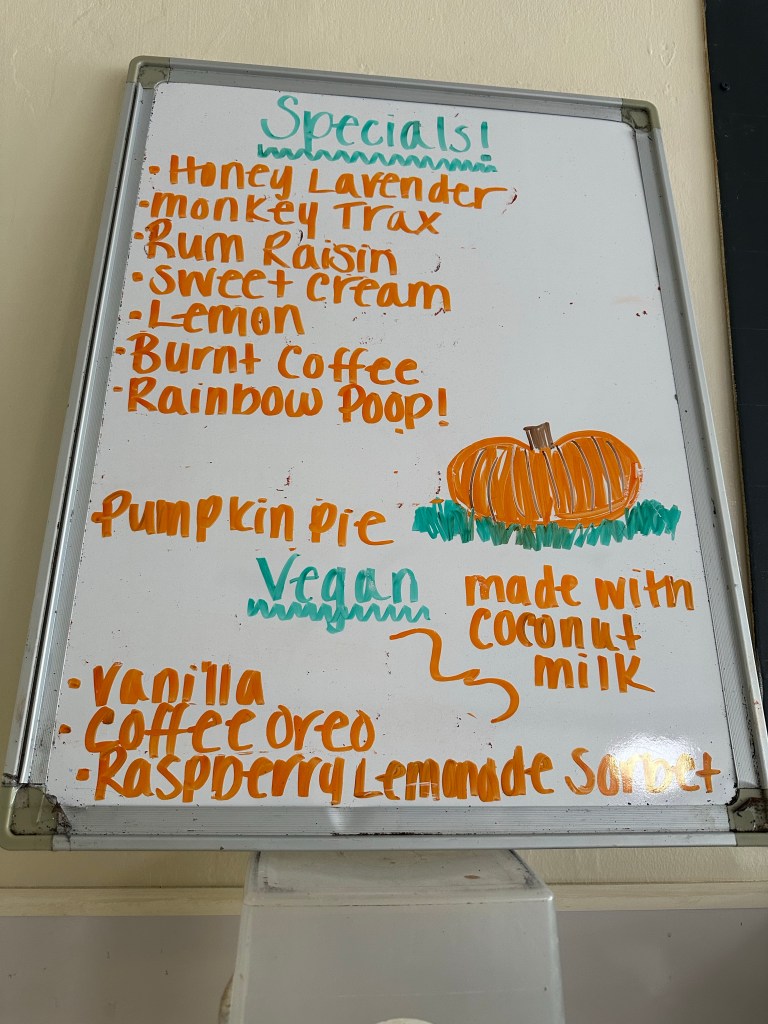 Specials!
• Honey Lavender
• monkey Trax
• Rum Raisin
• sweet cream
• Lemon
• Burnt Coffee
• Rainbow Poop!
Pumpkin pie
Vegan
made with
coconut
milk
• vanilla
• coffee oreo
• Raspberry Lemonade Sorbet